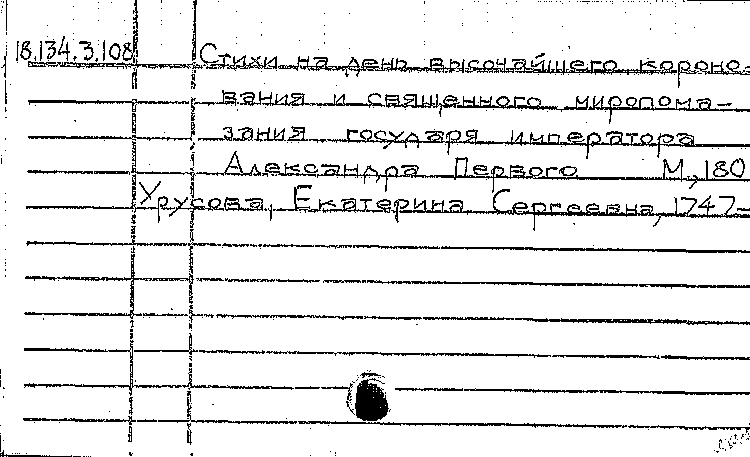 18.134.3.108 Стихи на день высочайшего короно-
вания и священного миропома-
зания государя императора
Александра Первого М., 180
Урусова, Екатерина Сергеевна, 1747-